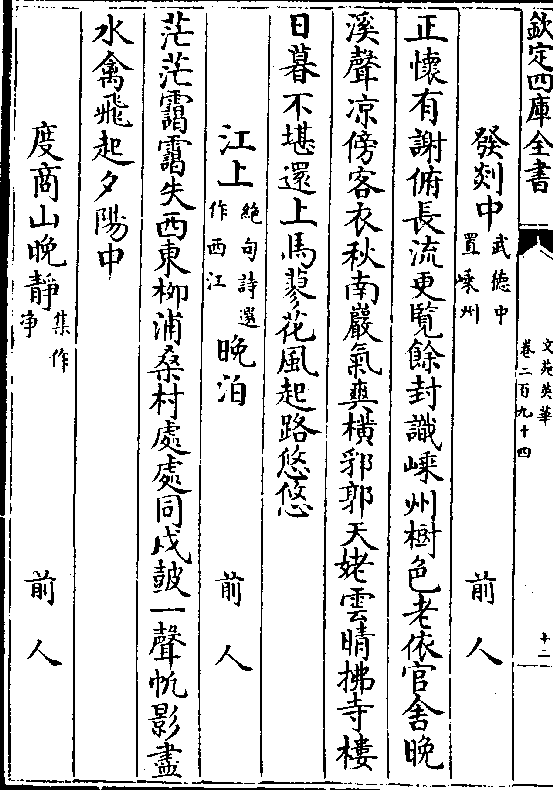 欽定四庫全書
文苑英華
卷二百九十四
十二
發剡中武德中置嵊州 前人
正懷有謝俯長流更覽餘封識嵊州樹色老依官舍晚
溪聲凉傍客衣秋南巖氣爽横郛郭天姥雲晴拂寺樓
日暮不堪還上馬蓼花風起路悠悠
江上絶句詩選作西江晚泊 前人
茫茫靄靄失西東柳浦桑村處處同戍鼓一聲帆影盡
水禽飛起夕陽中
度商山晚靜集作爭 前人